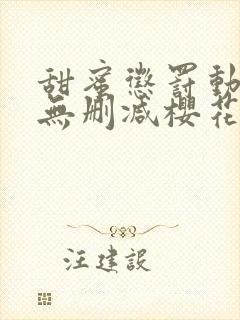 甜蜜懲罰動
無刪減櫻花
汪建設